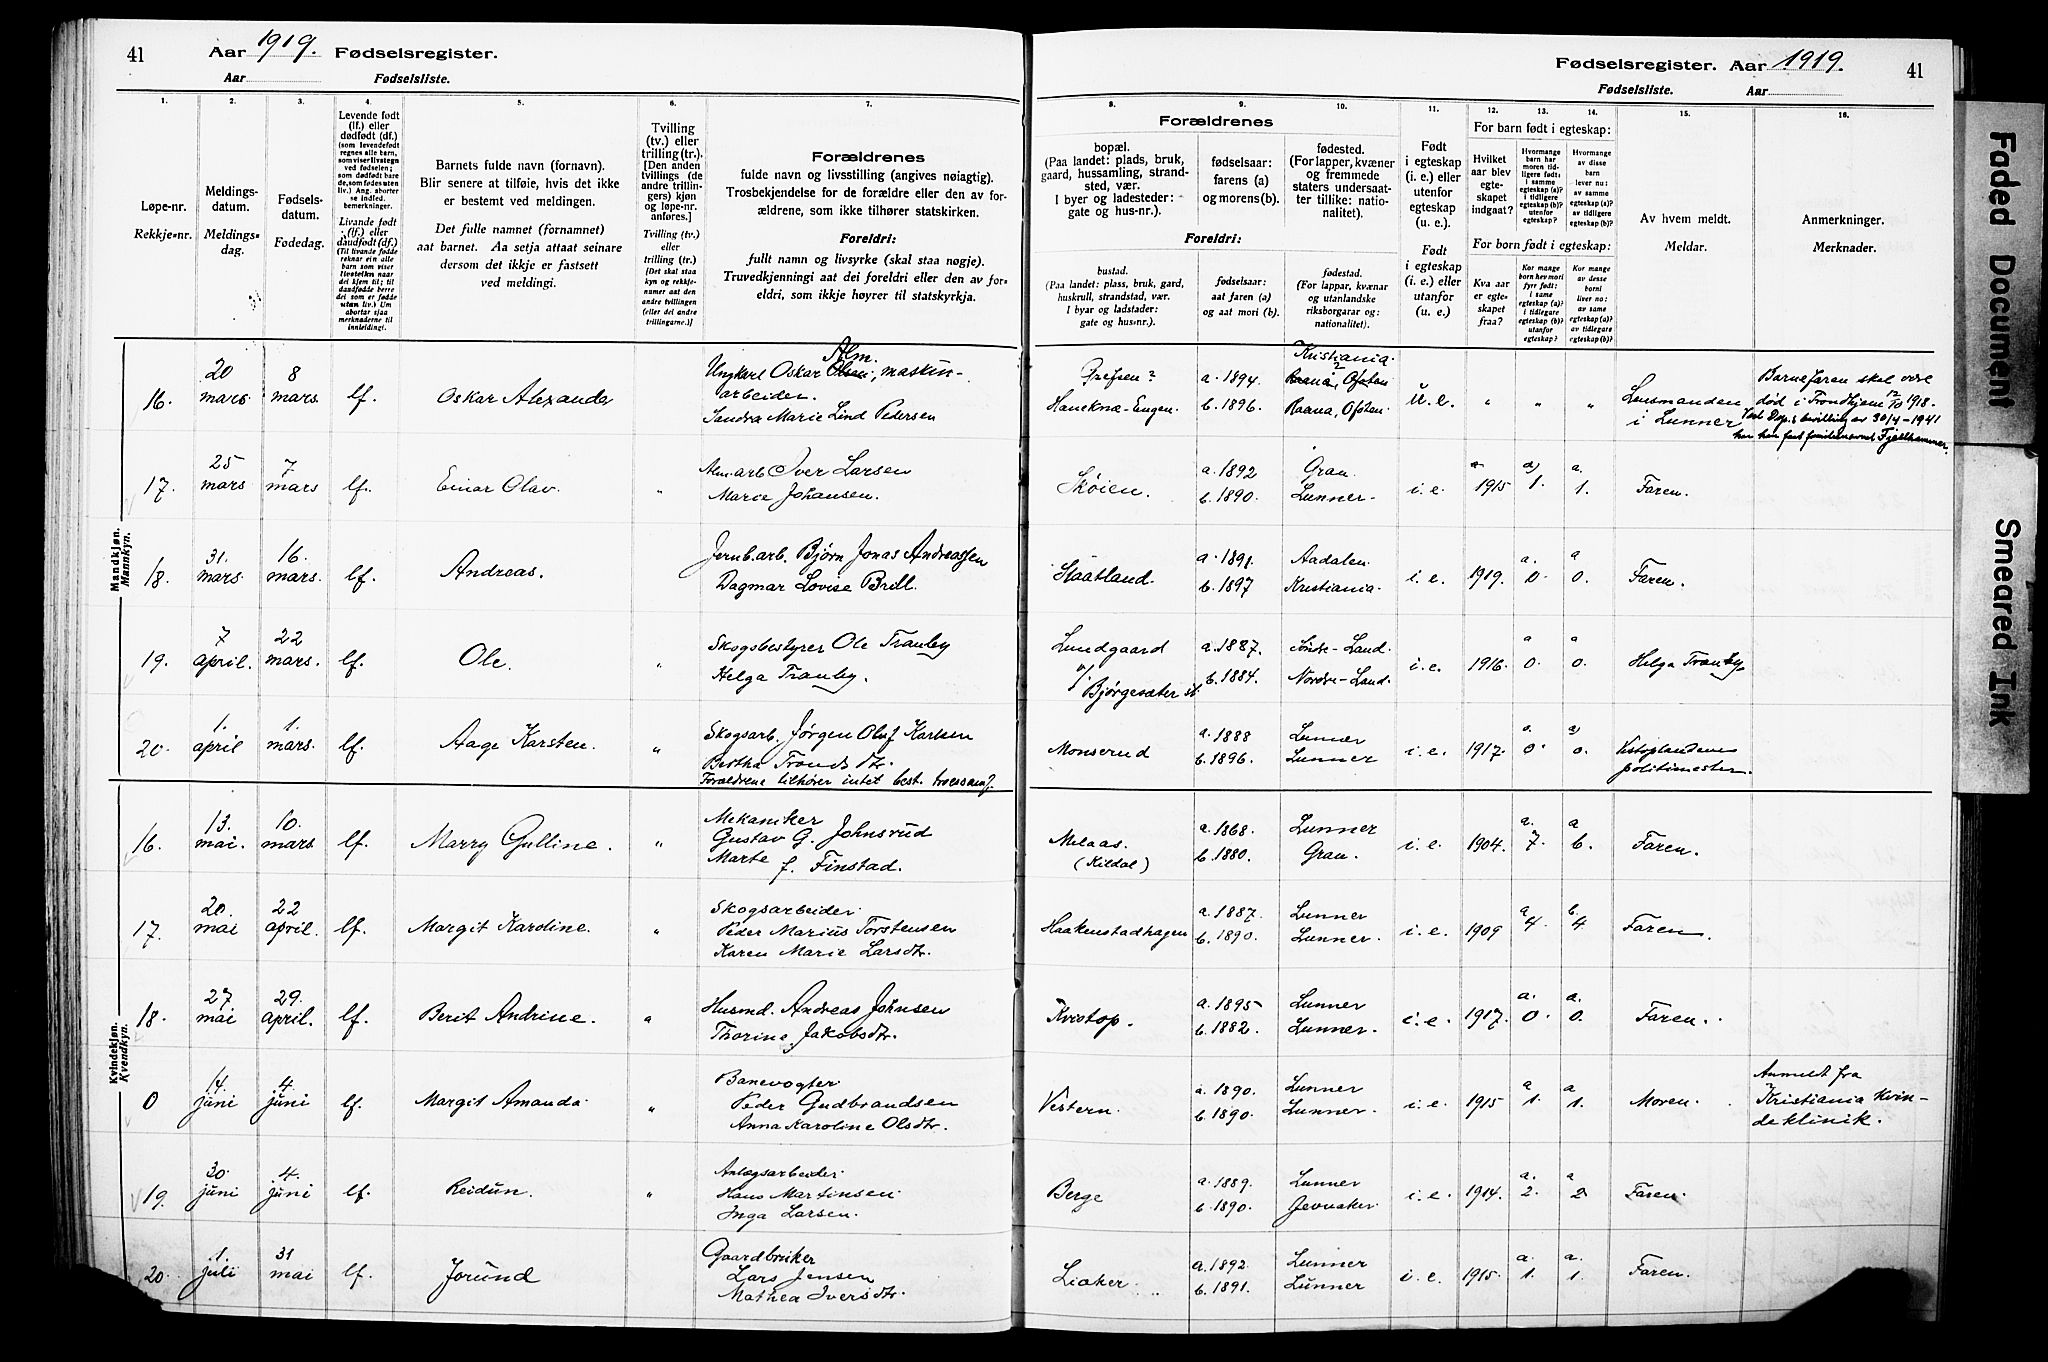 41
Aar 1919. Fødselsregister.
Aar Fødselsliste.
Fødselsregister. Aar 1919.
Fødselsliste. Aar
41
1. 2. 3. 4. 5. 6. 7. 8. 9. 10. 11. 12. 13. 14. 15. 16.
Løpe-nr.
Rekkje-nr.
Meldings-
datum.
Meldings-
dag.
Fødsels-
datum.
Fødedag.
Levende født
(lf.) eller
dødfødt (df.)
(som levendefødt
regnes alle barn,
som viser livstegn
ved fødselen;
som dødfødt bare
de, som fødes uten
liv.) Ang. aborter
se indled.
bemerkninger.
Livande født
(lf.) eller
daudfødt (df.)
Barnets fulde navn (fornavn).
Blir senere at tilføie, hvis det ikke
er bestemt ved meldingen.
Det fulle namnet (fornamnet)
aat barnet. Aa setja attaat seinare
dersom det ikkje er fastsett
ved meldingi.
Tvilling
(tv.) eller
trilling (tr.).
[Den anden
tvillings (de
andre trillin-
gers) kjøn
og løpe-nr.
anføres.]
Tvilling (tv.)
eller
trilling (tr.)
[Det skal staa
kyn og rekkje-
numer aat den
andre tvillingen
(eller dei andre
trillingarne.)]
Forældrenes
fulde navn og livsstilling (angives nøiagtig).
Trosbekjendelse for de forældre eller den av for-
ældrene, som ikke tilhører statskirken.
Foreldri:
fullt namn og livsyrke (skal staa nøgje).
Truvedkjenningi aat dei foreldri eller den av for-
eldri, som ikkje høyrer til statskyrkja.
Forældrenes
bopæl.
(Paa landet: plads, bruk,
gaard, hussamling, strand-
sted, vær.
I byer og ladesteder:
gate og hus-nr.).
fødselsaar:
farens (a)
og morens (b).
fødested.
(For lapper, kvæner
og fremmede
staters undersaat-
ter tillike: natio-
nalitet).
Foreldri:
bustad.
(Paa landet: plass, bruk, gard,
huskrull, strandstad, vær.
I byar og ladstader:
gate og hus-nr.).
fødselsaar:
aat faren (a)
og aat mori (b).
fødestad.
(For lappar, kvænar
og utanlandske
riksborgarar og:
nationalitet).
Født
i egteskap
(i. e.) eller
utenfor
egteskap
(u. e.).
Født
i egteskap
(i. e.) eller
utanfor
(u. e.)
For barn født i egteskap:
Hvilket
aar blev
egte-
skapet
indgaat?
Hvormange
barn har
moren tid-
ligere født:
i samme
egteskap (a)?
i tidligere
egteskap (b)?
utenfor
egteskap?
Hvormange
av disse
barn
lever nu:
av samme
egteskap (a)?
av tidligere
egteskap (b)?
For born født i egteskap:
Kva aar
er egte-
skapet
fraa?
Kor mange
born hev mori
fyrr født:
i same
egteskap (a)?
i tidlegare
egteskap (b)?
utanfor
egteskap?
Kor mange
av desse
borni
liver no:
av same
egteskap (a)?
av tidlegare
egteskap (b)?
Av hvem meldt.
Meldar.
Anmerkninger.
Merknader.
Mandkjøn.
Mannkyn.
16. 20 mars 8 mars lf. Oskar Alexander
Alm.
Ungkarl Oskar Olsen, maskin-
arbeider.
Marie Lind Pedersen
Grefsen? a. 1894. Kristiania.
b. 1896. Raana, Ofoten. u.e. " " " Lensmanden
i Lunner
Barnefaren skal være
død i Trondhjem 12/10 1918.
17. 25 mars 7 mars lf. Einar Olav. " Iver Larsen
Marie Johansen.
Skøien. a. 1892 Gran.
b. 1890. Lunner. i.e. 1915 a) 1. a. 1. Faren.
18. 31. mars 16. mars. lf. Andreas. Jernb.arb. Bjørn Jonas Andreassen
Dagmar Lovise Brill.
Staatland. a. 1891. Aadalen.
b. 1897 Kristiania. i.e. 1919. a. 0. a 0. Faren.
19. 7 april. 22 mars. lf. Ole. " Skogsbestyrer Ole Tranby
Helga Tranby.
Lundgaard
v/ Bjørgesæter st. a. 1887. Søndre-Land.
b. 1884. Nordre-Land. i.e. 1916. a 0. a 0. Helga Tranby.
20. 1. april 1. mars. lf. Aage Karsten. " Skogsarb. Jørgen Oluf Karlsen
Bertha Tronds dtr.
Forældrene tilhører intet best. trossamf.
Monserud a. 1888 Lunner
b. 1896. Lunner i.e. 1917. a. 0. a) 0.
politimester.
Kvindekjøn.
Kvendkyn.
16. 13. mai. 10. mars lf. Marry Gulline. " Mekaniker
Gustav G. Johnsrud
Marte f. Finstad.
Melaas.
(Kildal) a. 1868. Lunner
b. 1880. Gran. i.e. 1904. a. 7. a 6. Faren.
17. 20. mai 22 april. lf. Margit Karoline. " Skogsarbeider
Peder Marius Torstensen
Karen Marie Larsdtr.
Haakenstadhagen a. 1887. Lunner
b. 1890. Lunner. i.e. 1909 a 4. b. 4 Faren.
18. 27 mai 29. april. lf. Berit Andrine. " Husmd. Andreas Johnsen
Thorine Jakobsdtr.
Kvistop. a. 1895 Lunner
b. 1882. Lunner. i.e. 1917. a. 0. a. 0. Faren.
0 14. juni 4. juni lf. Margit Amanda. " Banevogter
Peder Gudbrandsen
Anna Karoline Olsdtr.
Vestern. a. 1890. Lunner
b. 1890. Lunner. i.e. 1915 a 1. a 1. Moren.
Anmeldt fra
Kristiania Kvin-
deklinik.
19. 30. juni 4. juni lf. Reidun. " Anlægsarbeider
Hans Martinsen.
Inga Larsen.
Berge a. 1889. Lunner
b. 1890. Jevnaker. i.e. 1914. a. 2. a 2 Faren.
20. 1. juli 31 mai lf. Jorund Gaardbruker
Lars Jensen
Mathea Iversdtr.
Lioker. a. 1892. Lunner
b. 1891. Lunner i.e. 1915. a. 1. a. 1. Faren.
Faded Document
Smeared Ink